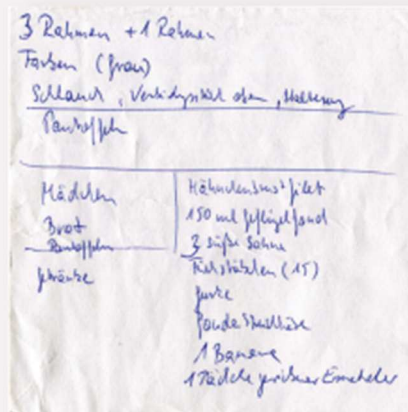 3 Rahmen + 1 Rahmen
Farben (grau)
Schlauch, Verbindungsstück oben, Halterung
Pantoffeln
Mädchen
Brot
Pantoffeln
Getränke
Hähnchenbrustfilet
150 ml Geflügelfond
3 süße Sahne
(15)
Gurke
1 Banane
1 Päckchen geriebener Emmentaler